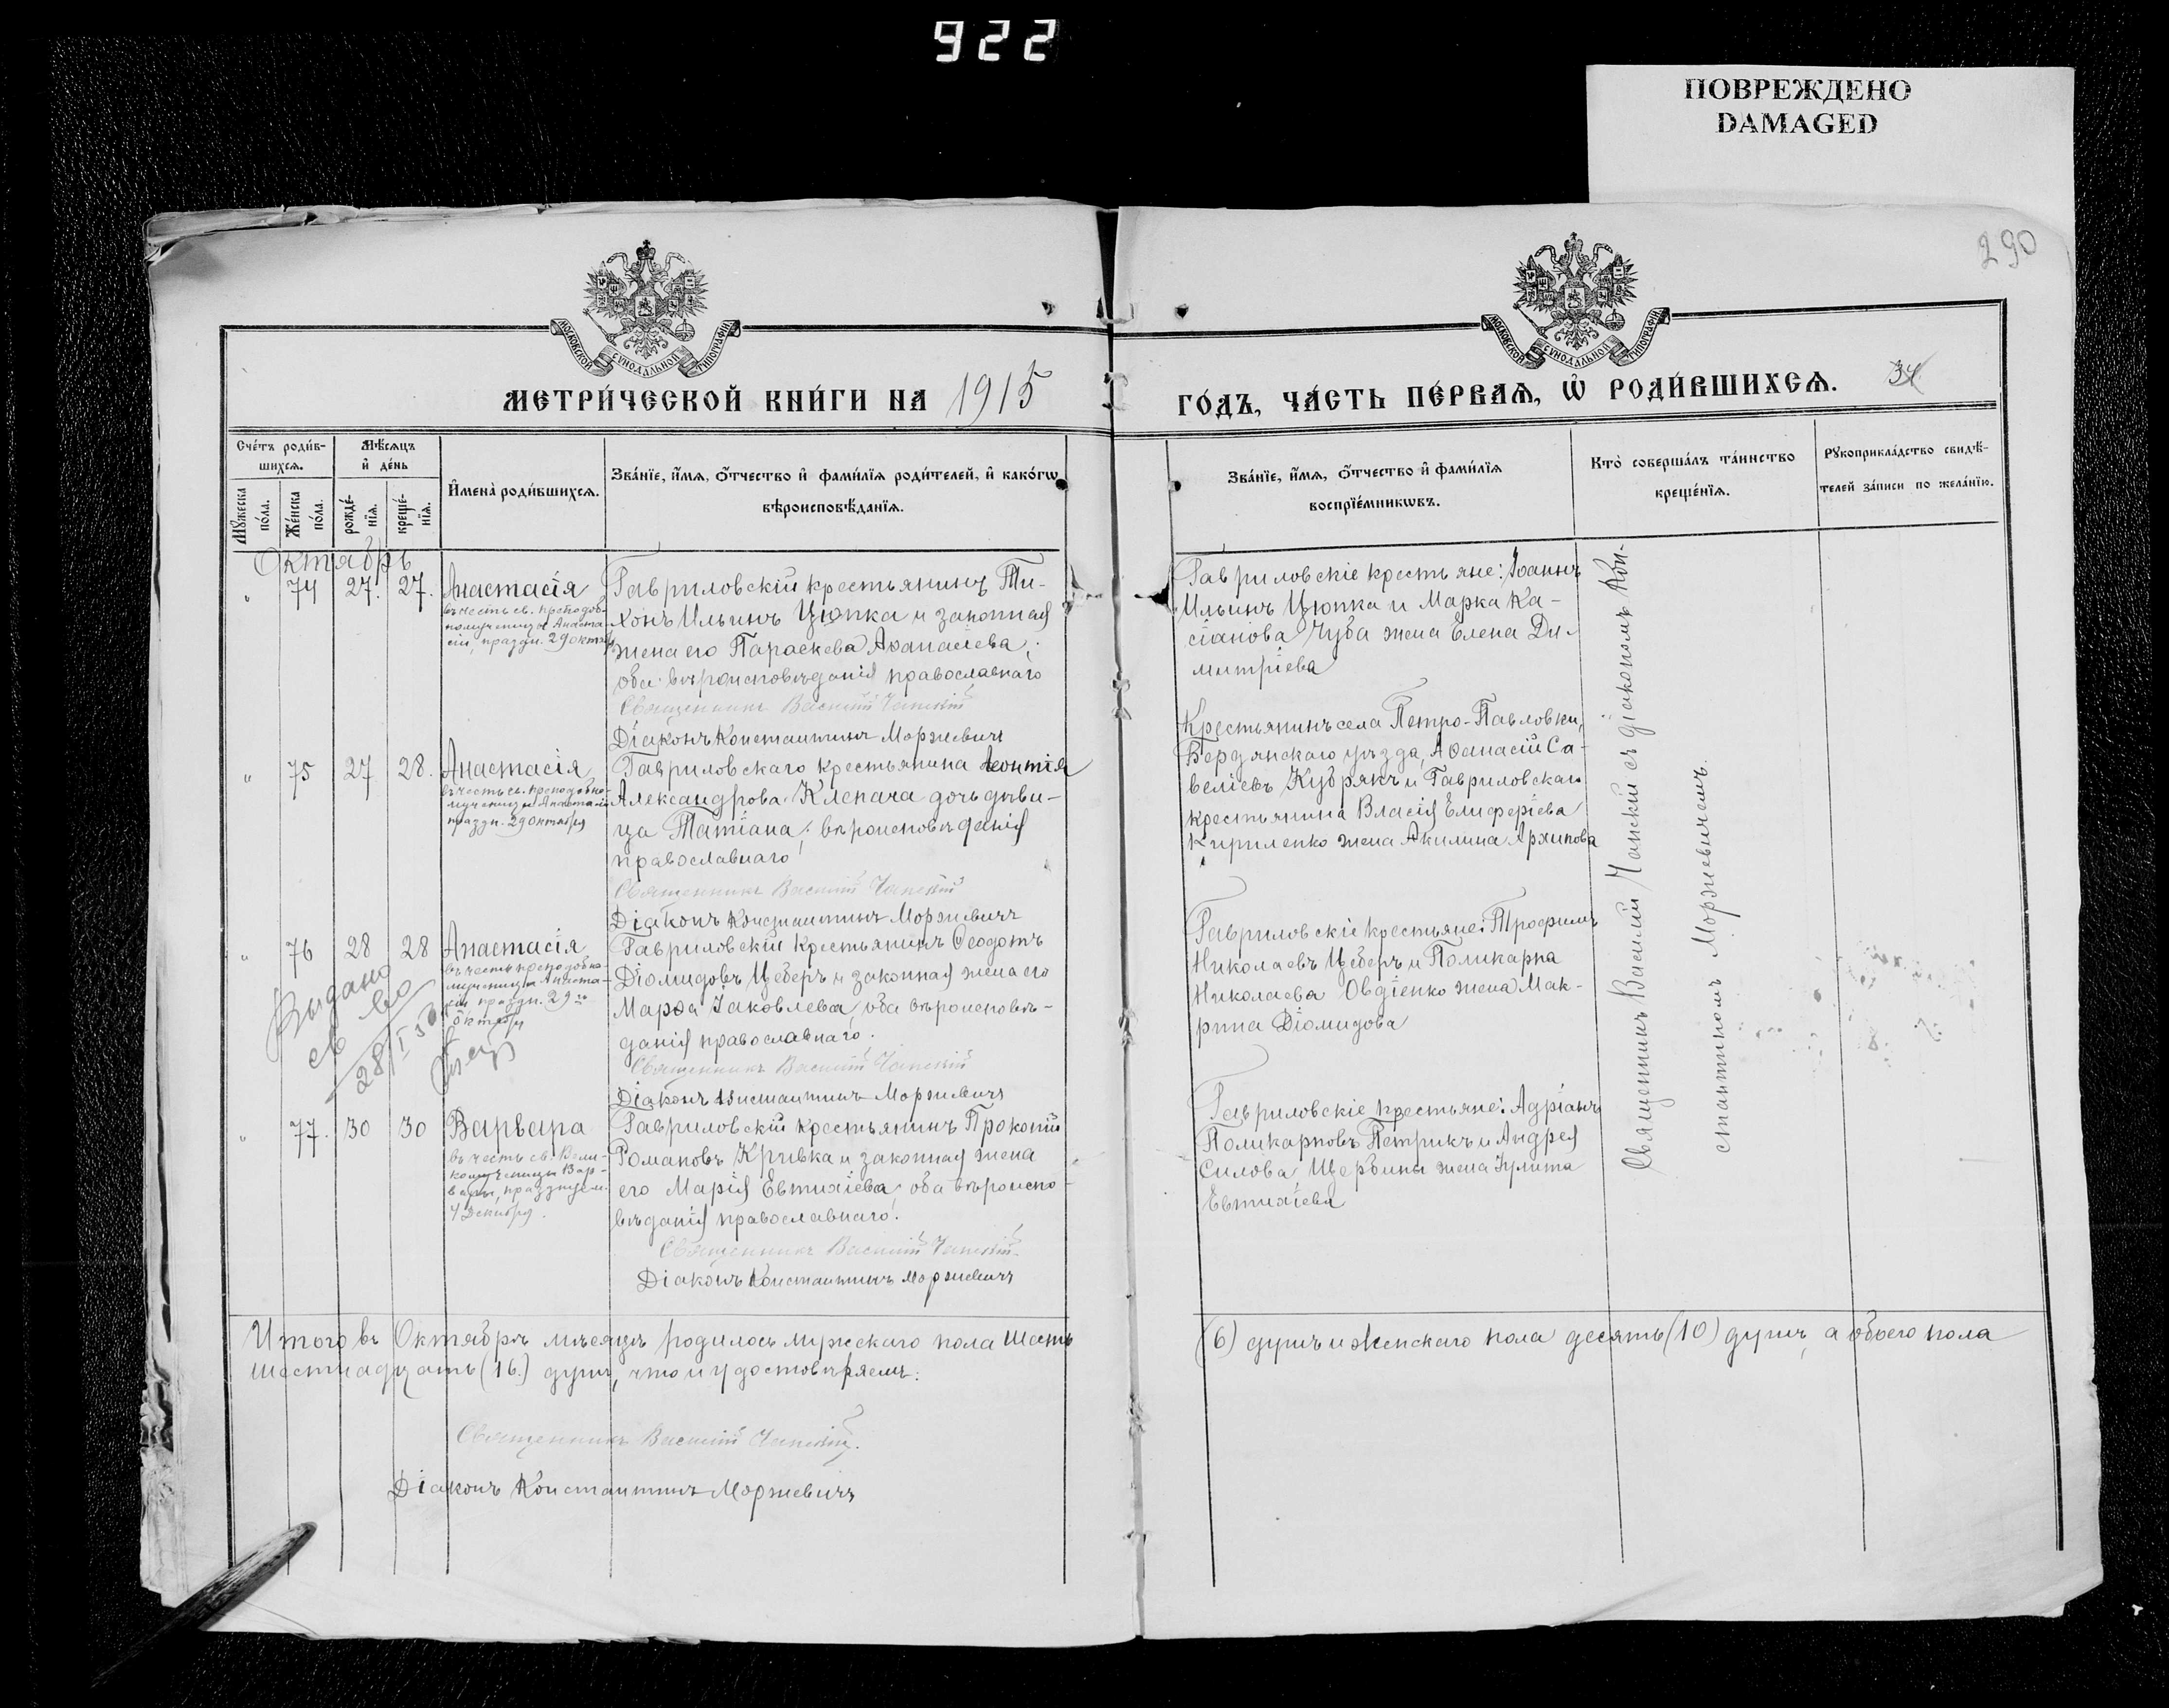 922
ПОВРЕЖДЕНО
DAMAGED
290
МОСКОВСКОЙ СѴНОДАЛЬНОЙ ТИПОГРАФІИ
МОСКОВСКОЙ СѴНОДАЛЬНОЙ ТИПОГРАФІИ
МЕТРИ́ЧЕСКОЙ КНИ́ГИ НА 1915
ГО́ДЪ, ЧА́СТЬ ПЕ́РВАѦ, Ѡ РОДИ́ВШИХСѦ. 34
Сче́тъ роди́в-
шихсѧ.
Мꙋ́жеска по́ла.
Же́нска по́ла.
Мѣ́сѧцъ
и҆ де́нь
рожде́-
нїѧ.
креще́-
нїѧ.
И҆мена̀ роди́вшихсѧ.
Зва́нїе, и҆́мѧ, ѻ҆́тчество и҆ фами́лїѧ роди́телей, и҆ како́гѡ
вѣроисповѣ́данїѧ.
Зва́нїе, и҆́мѧ, ѻ҆́тчество и҆ фами́лїѧ
воспрїе́мникѡвъ.
Кто̀ соверша́лъ та́инство
креще́нїѧ.
Рꙋкоприкла́дство свидѣ́-
телей за́писи по жела́нїю.
Октябрь
" 74 27. 27. Анастасія
въ честь св. преподоб-
номученицы Анаста-
сіи, праздн. 29 октяб.
Гавриловскій крестьянинъ Ти-
хонъ Ильинъ Цюпка и законная
жена его Параскева Аѳанасіева;
оба вѣроисповѣданія православнаго
Священникъ Василій Чапскій
Діаконъ Константинъ Моржевичъ
Гавриловскіе крестьяне: Іоаннъ
Ильинъ Цюпка и Марка Ка-
сіанова Чуба жена Елена Ди-
митріева
" 75 27 28. Анастасія
въ честь св. преподобно-
мученицы Анастасіи
праздн. 29 октября
Гавриловскаго крестьянина Леонтія
Александрова Клепача дочь дѣви-
ца Татіана; вѣроисповѣданія
православнаго
Священникъ Василій Чапскій
Діаконъ Константинъ Моржевичъ
Крестьянинъ села Петро-Павловки,
Бердянскаго уѣзда, Аѳанасій Са-
веліевъ Кудрякъ и Гавриловскаго
крестьянина Власія Елиферіева
Кириленко жена Акилина Архипова
" 76 28 28 Анастасія
въ честь преподобно-
мученицы Анаста-
сіи праздн. 29го
октября
Выдано
св во
28/I 5
Гавриловскій крестьянинъ Ѳеодотъ
Діомидовъ Цеберъ и законная жена его
Марѳа Іаковлева, оба вѣроисповѣ-
данія православнаго.
Священникъ Василій Чапскій
Діаконъ Константинъ Моржевичъ
Гавриловскіе крестьяне: Трофимъ
Николаевъ Цеберъ и Поликарпа
Николаева Овдіенко жена Мак-
рина Діомидова
" 77. 30 30 Варвара
въ честь св. Вели-
комученицы Вар-
вары, празднуем.
4 Декабря.
Гавриловскій крестьянинъ Прокопій
Романовъ Кривка и законная жена
его Марія Евтихіева, оба вѣроиспо-
вѣданія православнаго.
Священникъ Василій Чапскій
Діаконъ Константинъ Моржевичъ
Гавриловскіе крестьяне: Адріанъ
Поликарповъ Петрикъ и Андрея
Силова Щербины жена Іулита
Евтихіева
Священникъ Василій Чапскій съ діакономъ Кон-
стантиномъ Моржевичемъ.
Итого въ Октябрѣ мѣсяцѣ родилось мужескаго пола шесть (6) душъ и женскаго пола десять (10) душъ, а обоего пола
шестнадцать (16.) душъ, что и удостовѣряемъ:
Священникъ Василій Чапскій.
Діаконъ Константинъ Моржевичъ